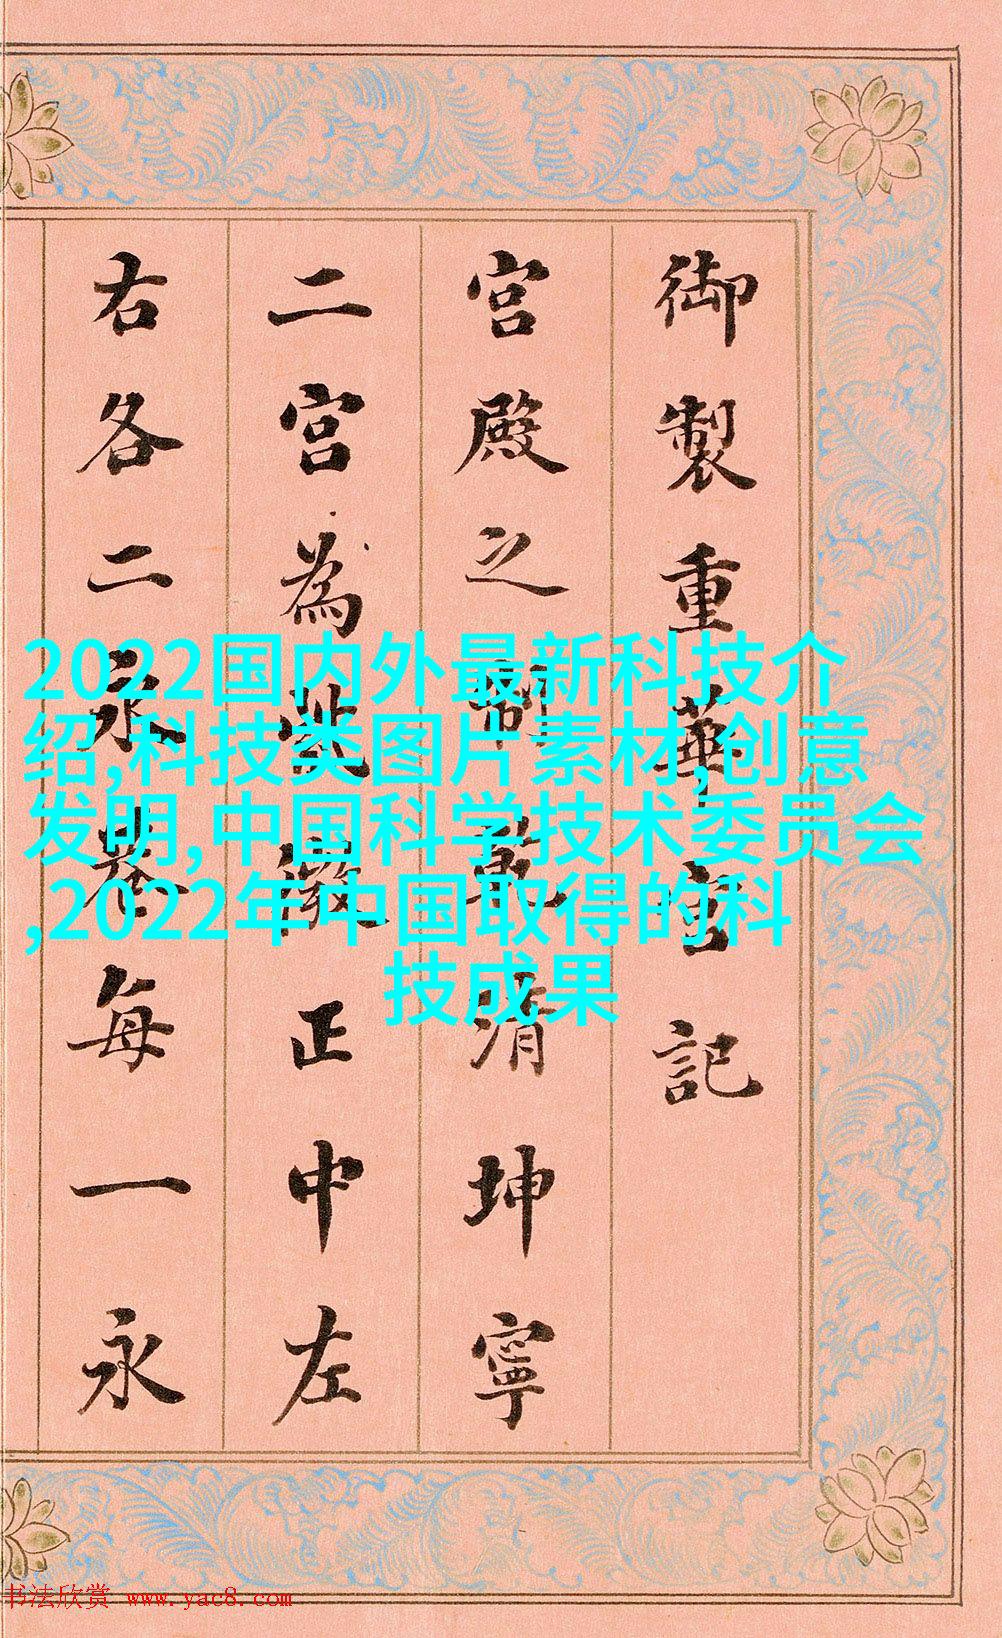 御製重華宮記
宮殿之制乾清坤寧
二宮為紫微正中左
右各二永巷每一永
2022国内外最新科技介
绍,科技类图片素材,创意
发明,中国科学技术委员会
,2022年中国取得的科
技成果
书法欣赏 www.yac8.com